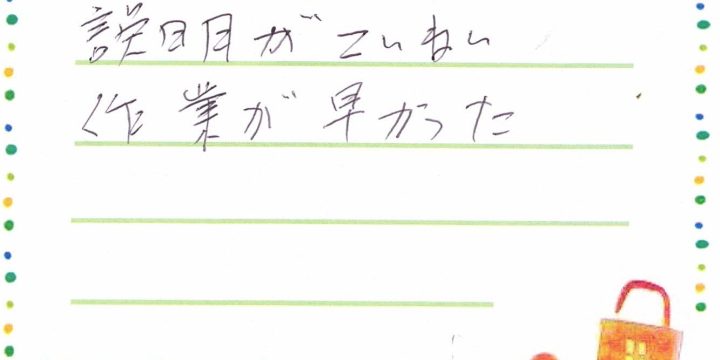 説明がていねい
作業が早かった